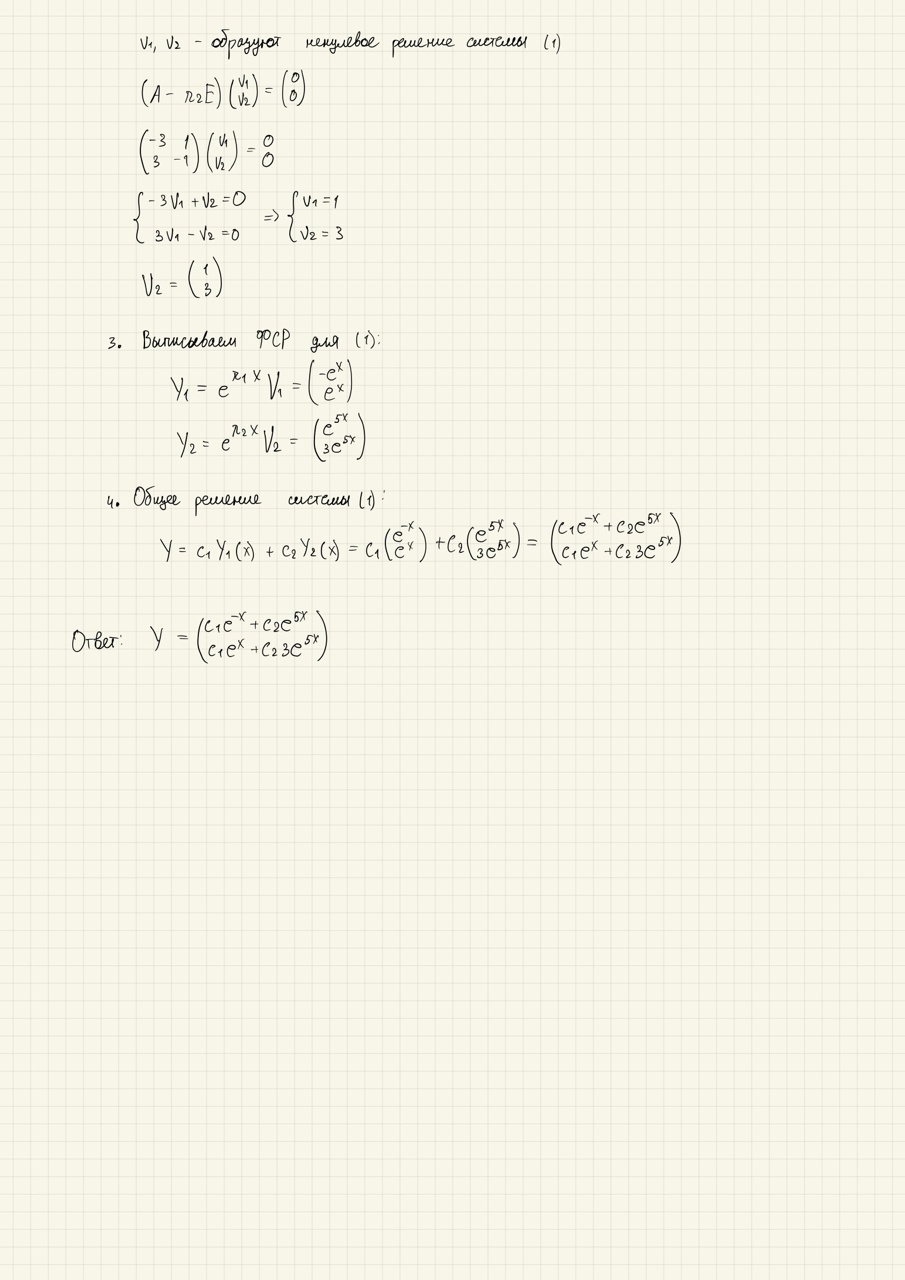 v₁, v₂ - образуют ненулевое решение системы (1)
(A - r₂E)(v₁ v₂) = (0 0)
(-3 1 3 -1)(v₁ v₂) = 0 0
{-3v₁ + v₂ = 0 => {v₁ = 1
3v₁ - v₂ = 0 v₂ = 3
V₂ = (1 3)
3. Выписываем ФСР для (1):
Y₁ = e^{r₁x} V₁ = (-e^x e^x)
Y₂ = e^{r₂x} V₂ = (e^{5x} 3e^{5x})
4. Общее решение системы (1):
Y = c₁Y₁(x) + c₂Y₂(x) = c₁(e^{-x} e^x) + c₂(e^{5x} 3e^{5x}) = (c₁e^{-x} + c₂e^{5x} c₁e^x + c₂3e^{5x})
Ответ: Y = (c₁e^{-x} + c₂e^{5x} c₁e^x + c₂3e^{5x})